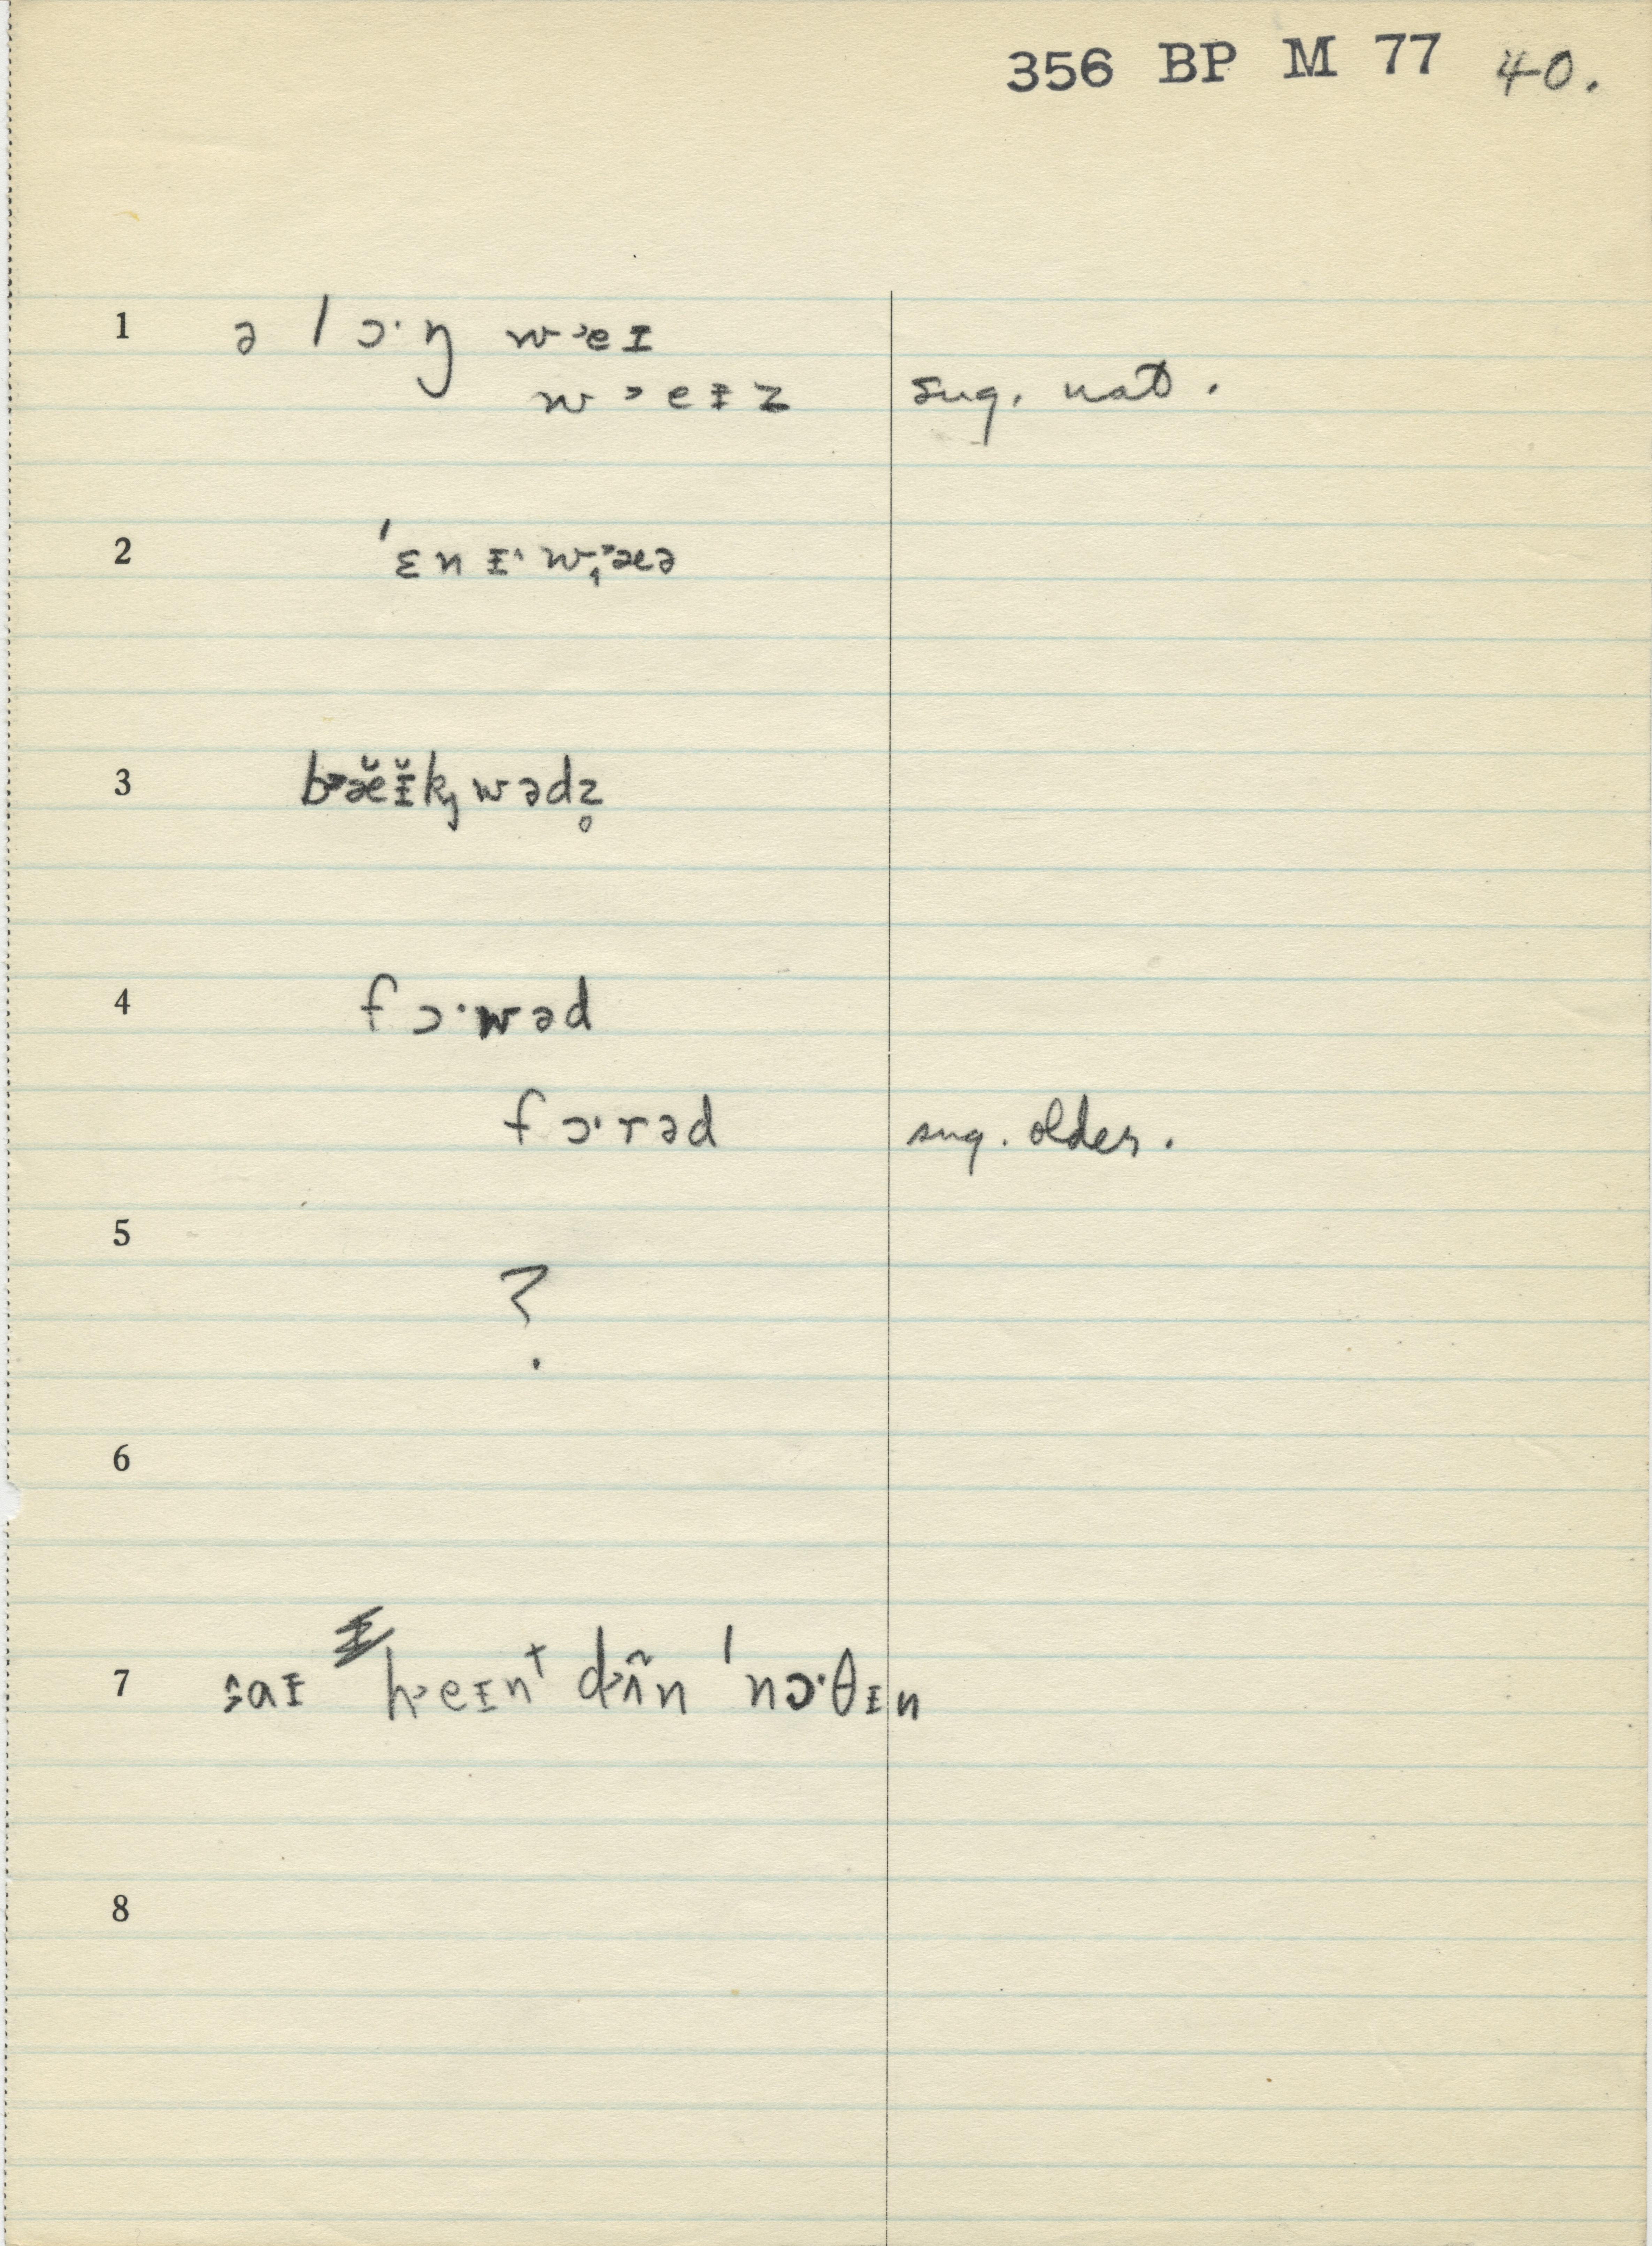 356 BP M 77 40.
1 ə lɔ·ŋ w˃eɪ
w˃eɪz sug. nat.
2 ˈɛnɪ·w æə
3 b˃æ̆ɪ̆kwədz̥
4 fɔ·wəd
fɔ·rəd sug. older.
5
?
6
7 saɪ h˃eɪnt dʌ̃n ˈnɔ·θɪn
8